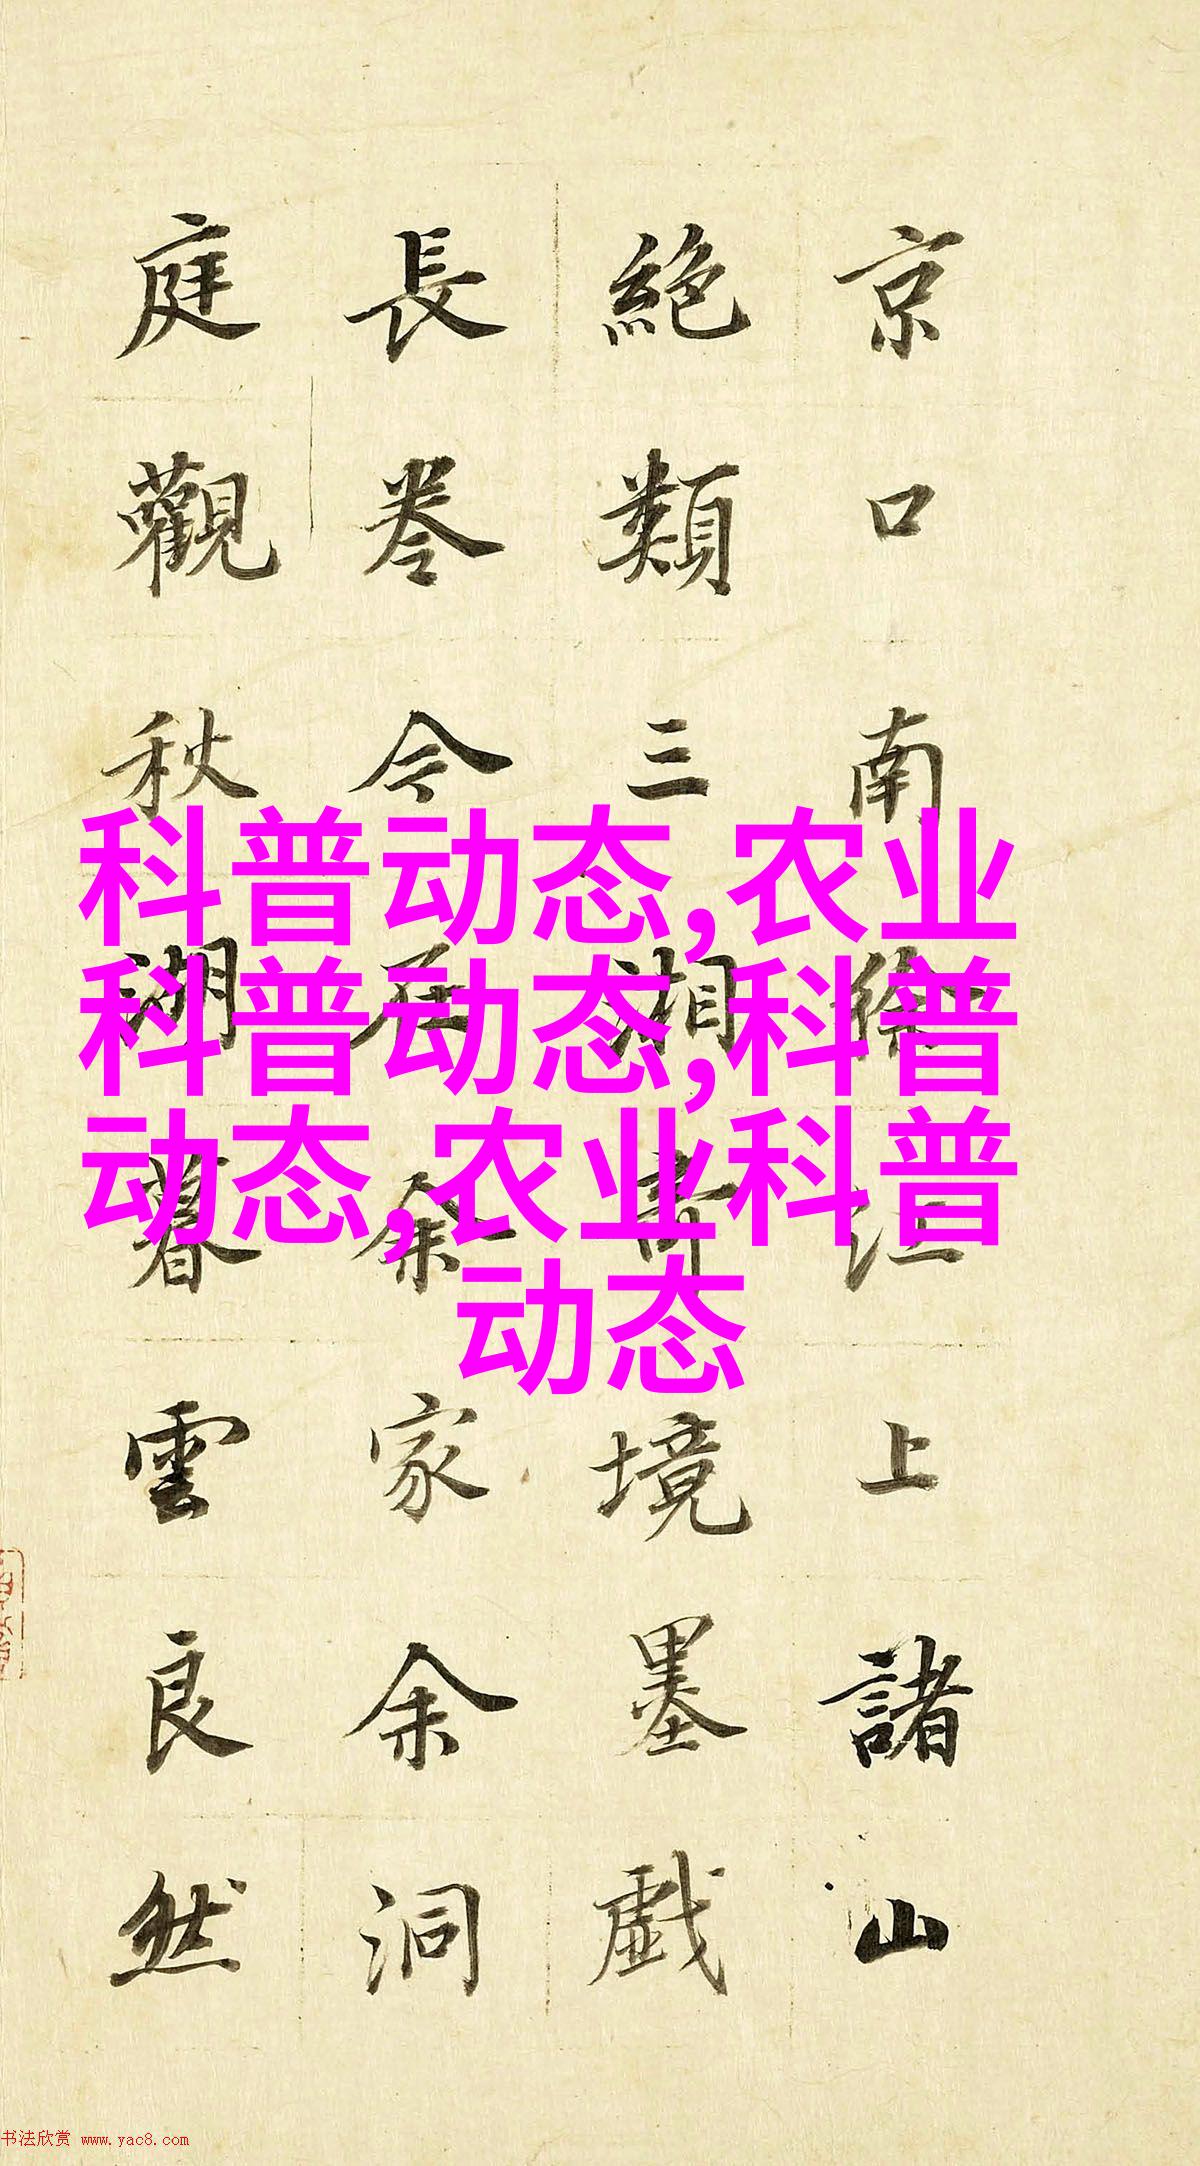 京口南徐江上諸山
絕類三湘奇境墨戲
長卷今余家余洞
庭觀秋湖暮雲良然
科普动态,农业
科普动态,科普
动态,农业科普
动态
书法欣赏 www.yac8.com